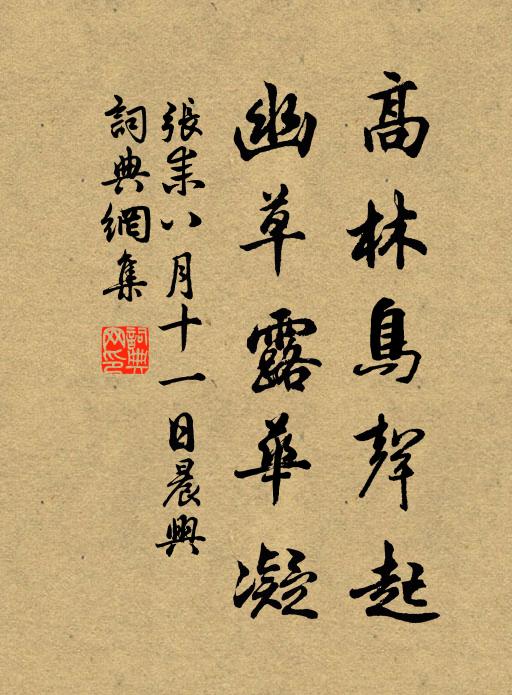 高林鳥聲起
幽草露華凝
張耒八月十一日晨興
詞典網集
詞典網印